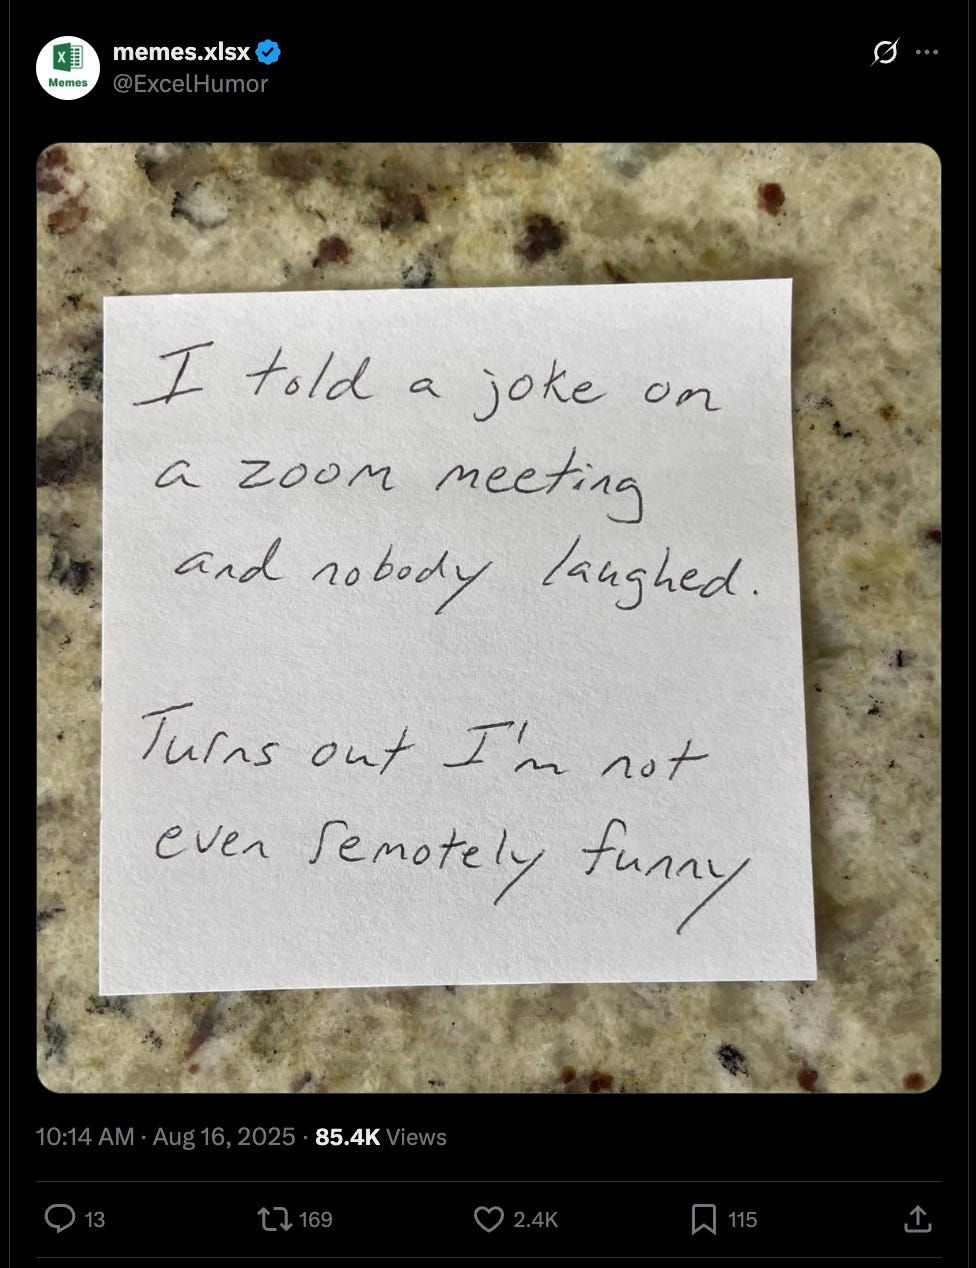 memes.xlsx
Memes
@ExcelHumor
I told a joke on
a zoom meeting
and nobody laughed.
Turns out I'm not
even remotely funny
10:14 AM · Aug 16, 2025 · 85.4K Views
13 169 2.4K 115